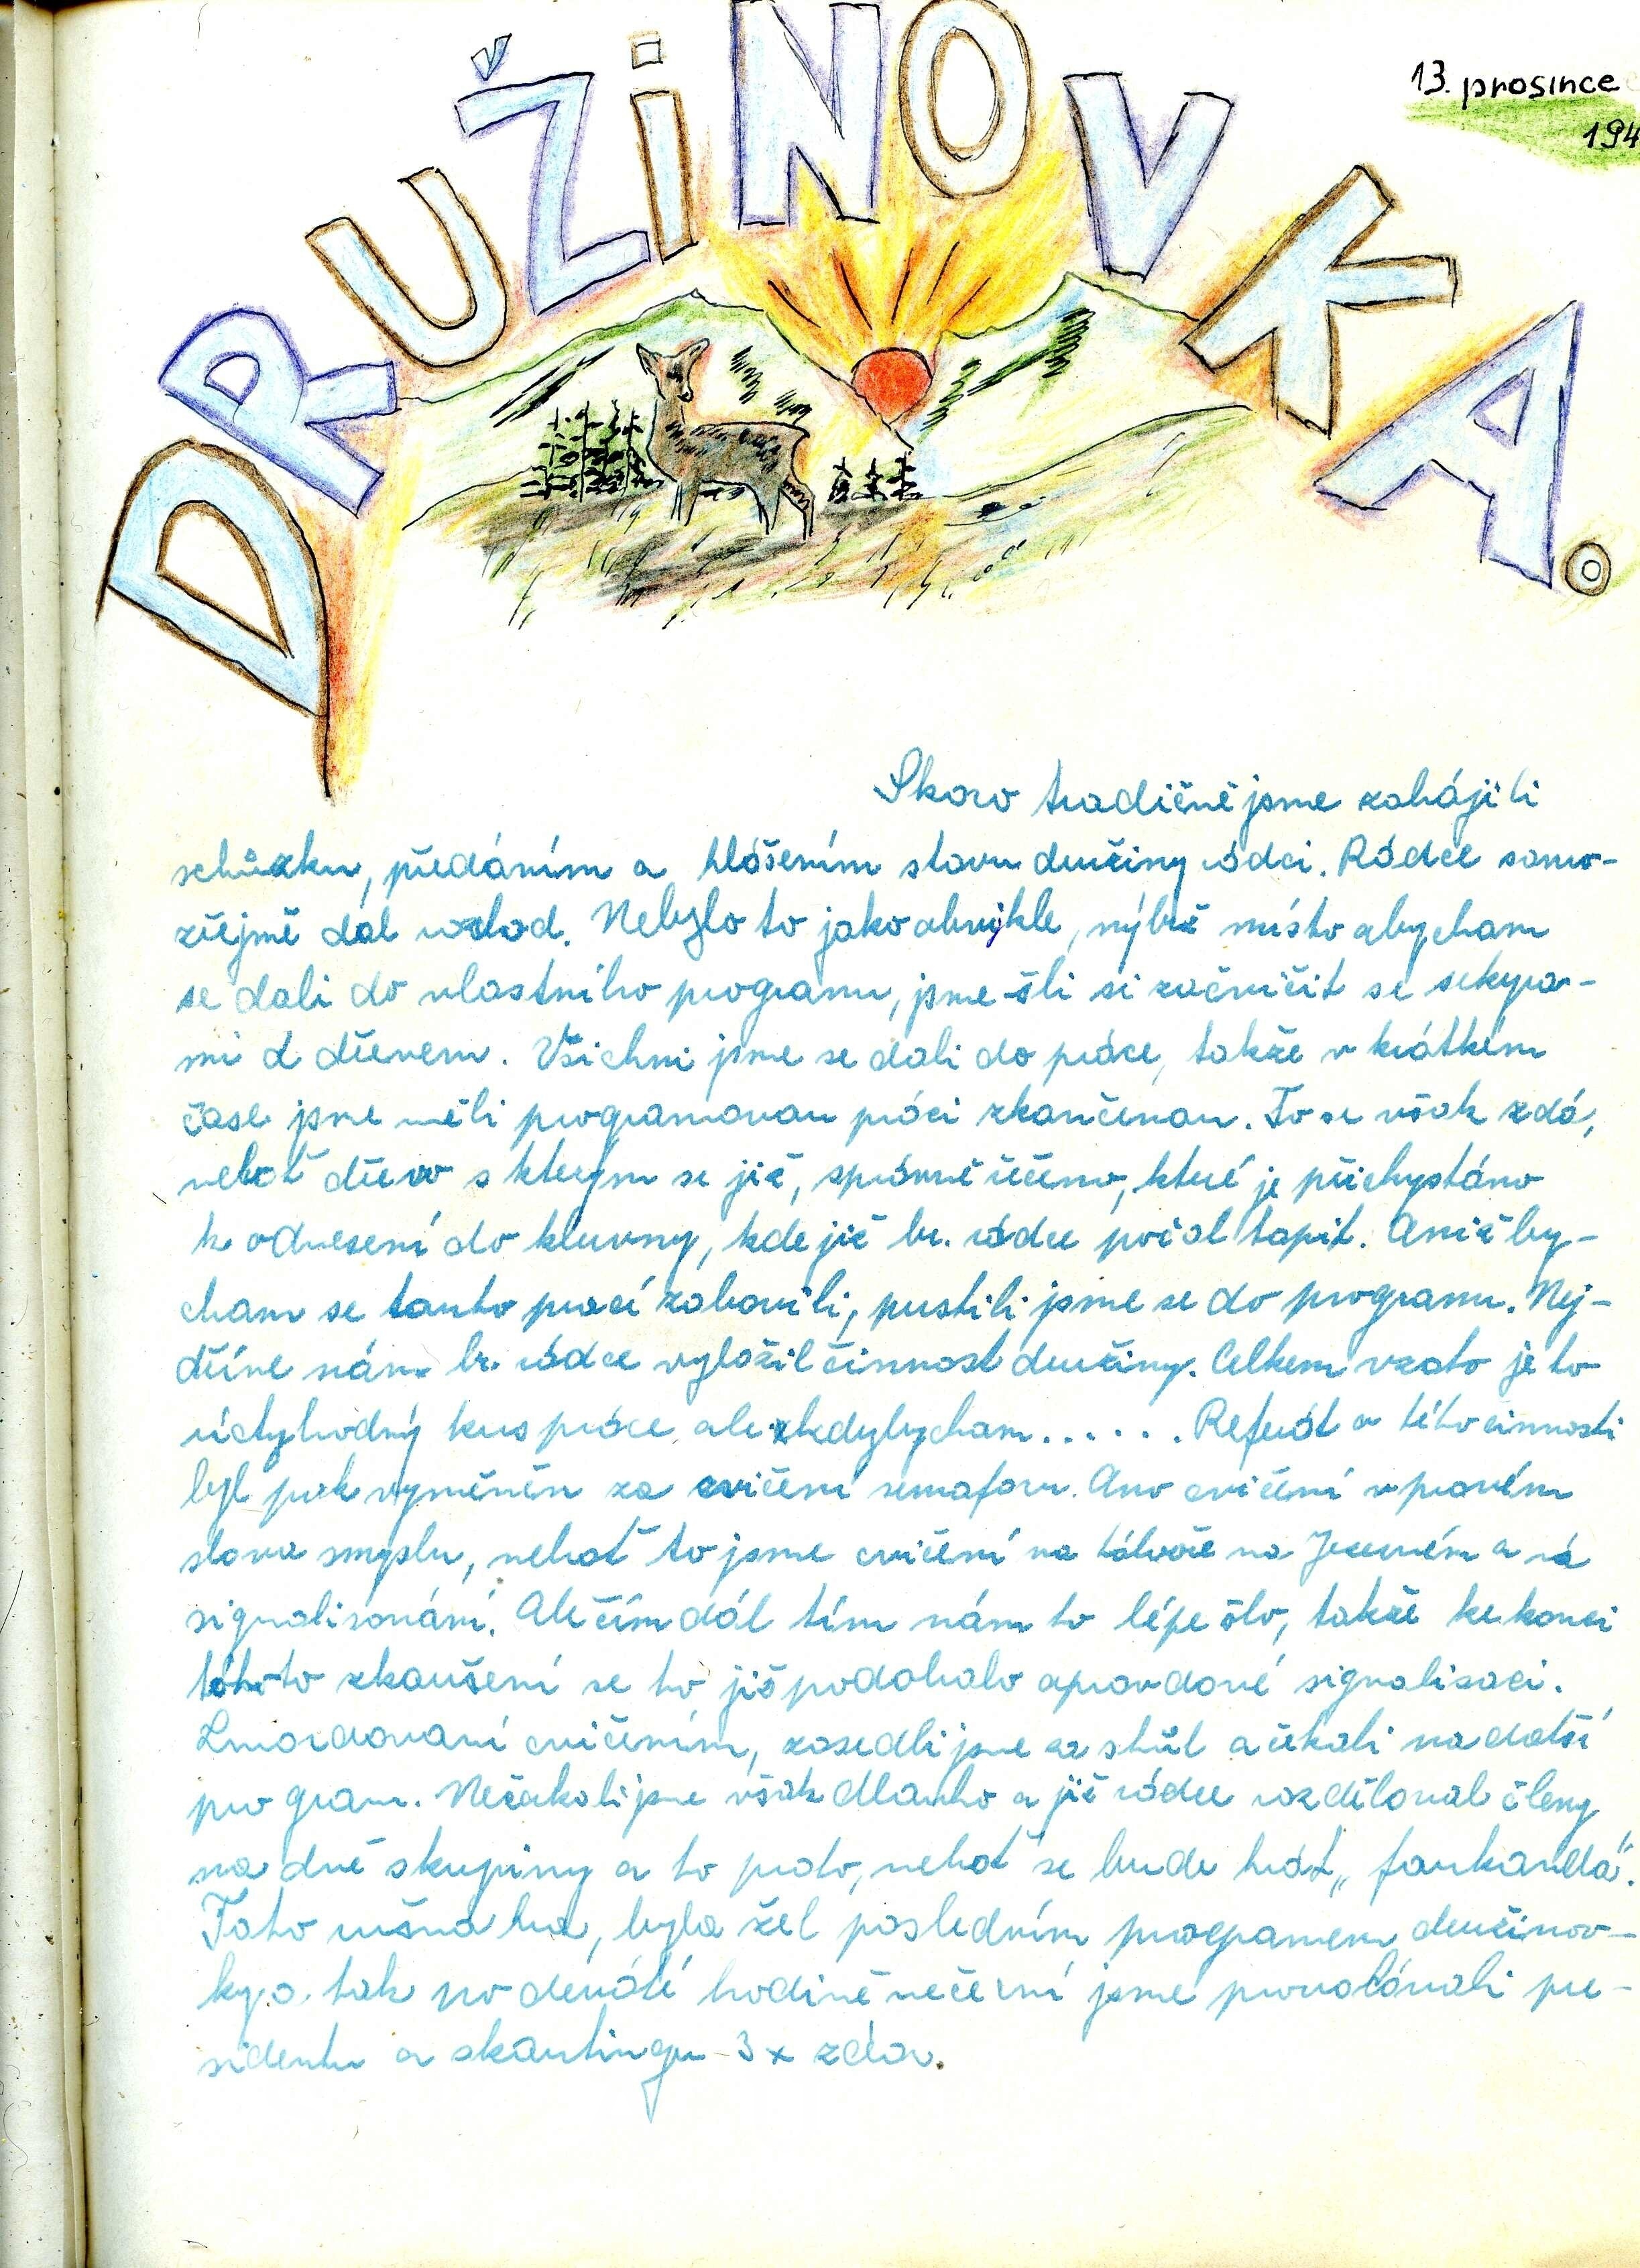 DRUŽINOVKA.
13. prosince
194
Skoro tradičně jsme zahájili
schůzku, předáním a hlášením stavu družiny rádci. Rádce samo-
zřejmě dal rozchod. Nebylo to jako obvykle, nýbrž místo abychom
se dali do vlastního programu, jsme šli si zacvičit se sekyra-
mi a dřevem. Všichni jsme se dali do práce, takže v krátkém
čase jsme měli programovou práci zkončenou. To se však zdá,
neboť dřevo s kterým se již, správně řečeno, které je přichystáno
k odnesení do klubovny, kde již br. rádce počal topit. Aniž by-
chom se touto prací zabavili, pustili jsme se do programu. Nej-
dříve nám br. rádce vyložil činnost družiny. Celkem vzato je to
úctyhodný kus práce ale kdybychom...... Referát o této činnosti
byl pak vyměněn za cvičení semaforu. Ano cvičení v pravém
slova smyslu, neboť to jsme cvičení na táboře na Jezerném a na
signalisování. Ale čím dál tím nám to lépe šlo, takže ke konci
tohoto zkoušení se to již podobalo opravdové signalisaci.
Zmordovaní cvičením, zasedli jsme za stůl a čekali na další
program. Nečekali jsme však dlouho a již rádce rozděloval členy
na dvě skupiny a to proto, neboť se bude hrát „foukandá".
Tato rušná hra, byla žel posledním programem družinov-
ky a tak po deváté hodině večerní jsme provolávali pre-
sidentu a skautingu 3x zdar.